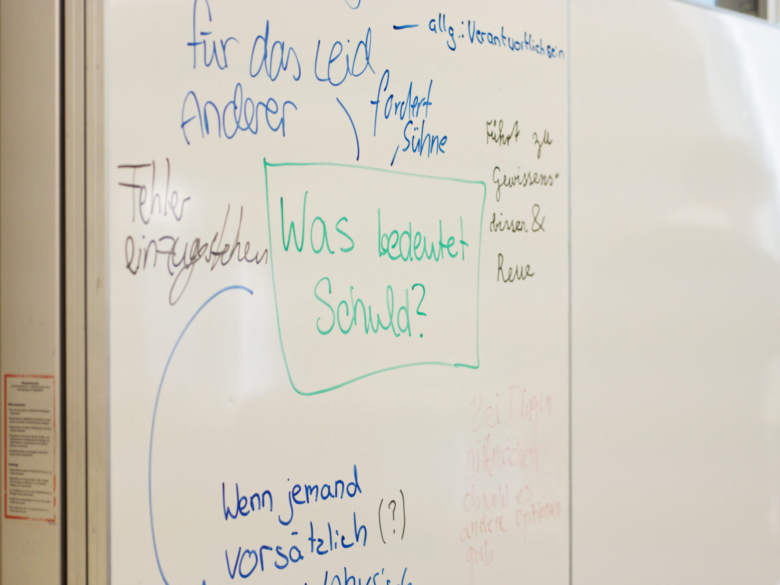 für das Leid
Anderer
— allg.: Verantwortlichsein
fordert
Sühne
Führt zu
Gewissens-
bissen &
Reue
Fehler
einzugestehen
Was bedeutet
Schuld?
Bei
obwohl es
andere Optionen
gab
Wenn jemand
vorsätzlich (?)